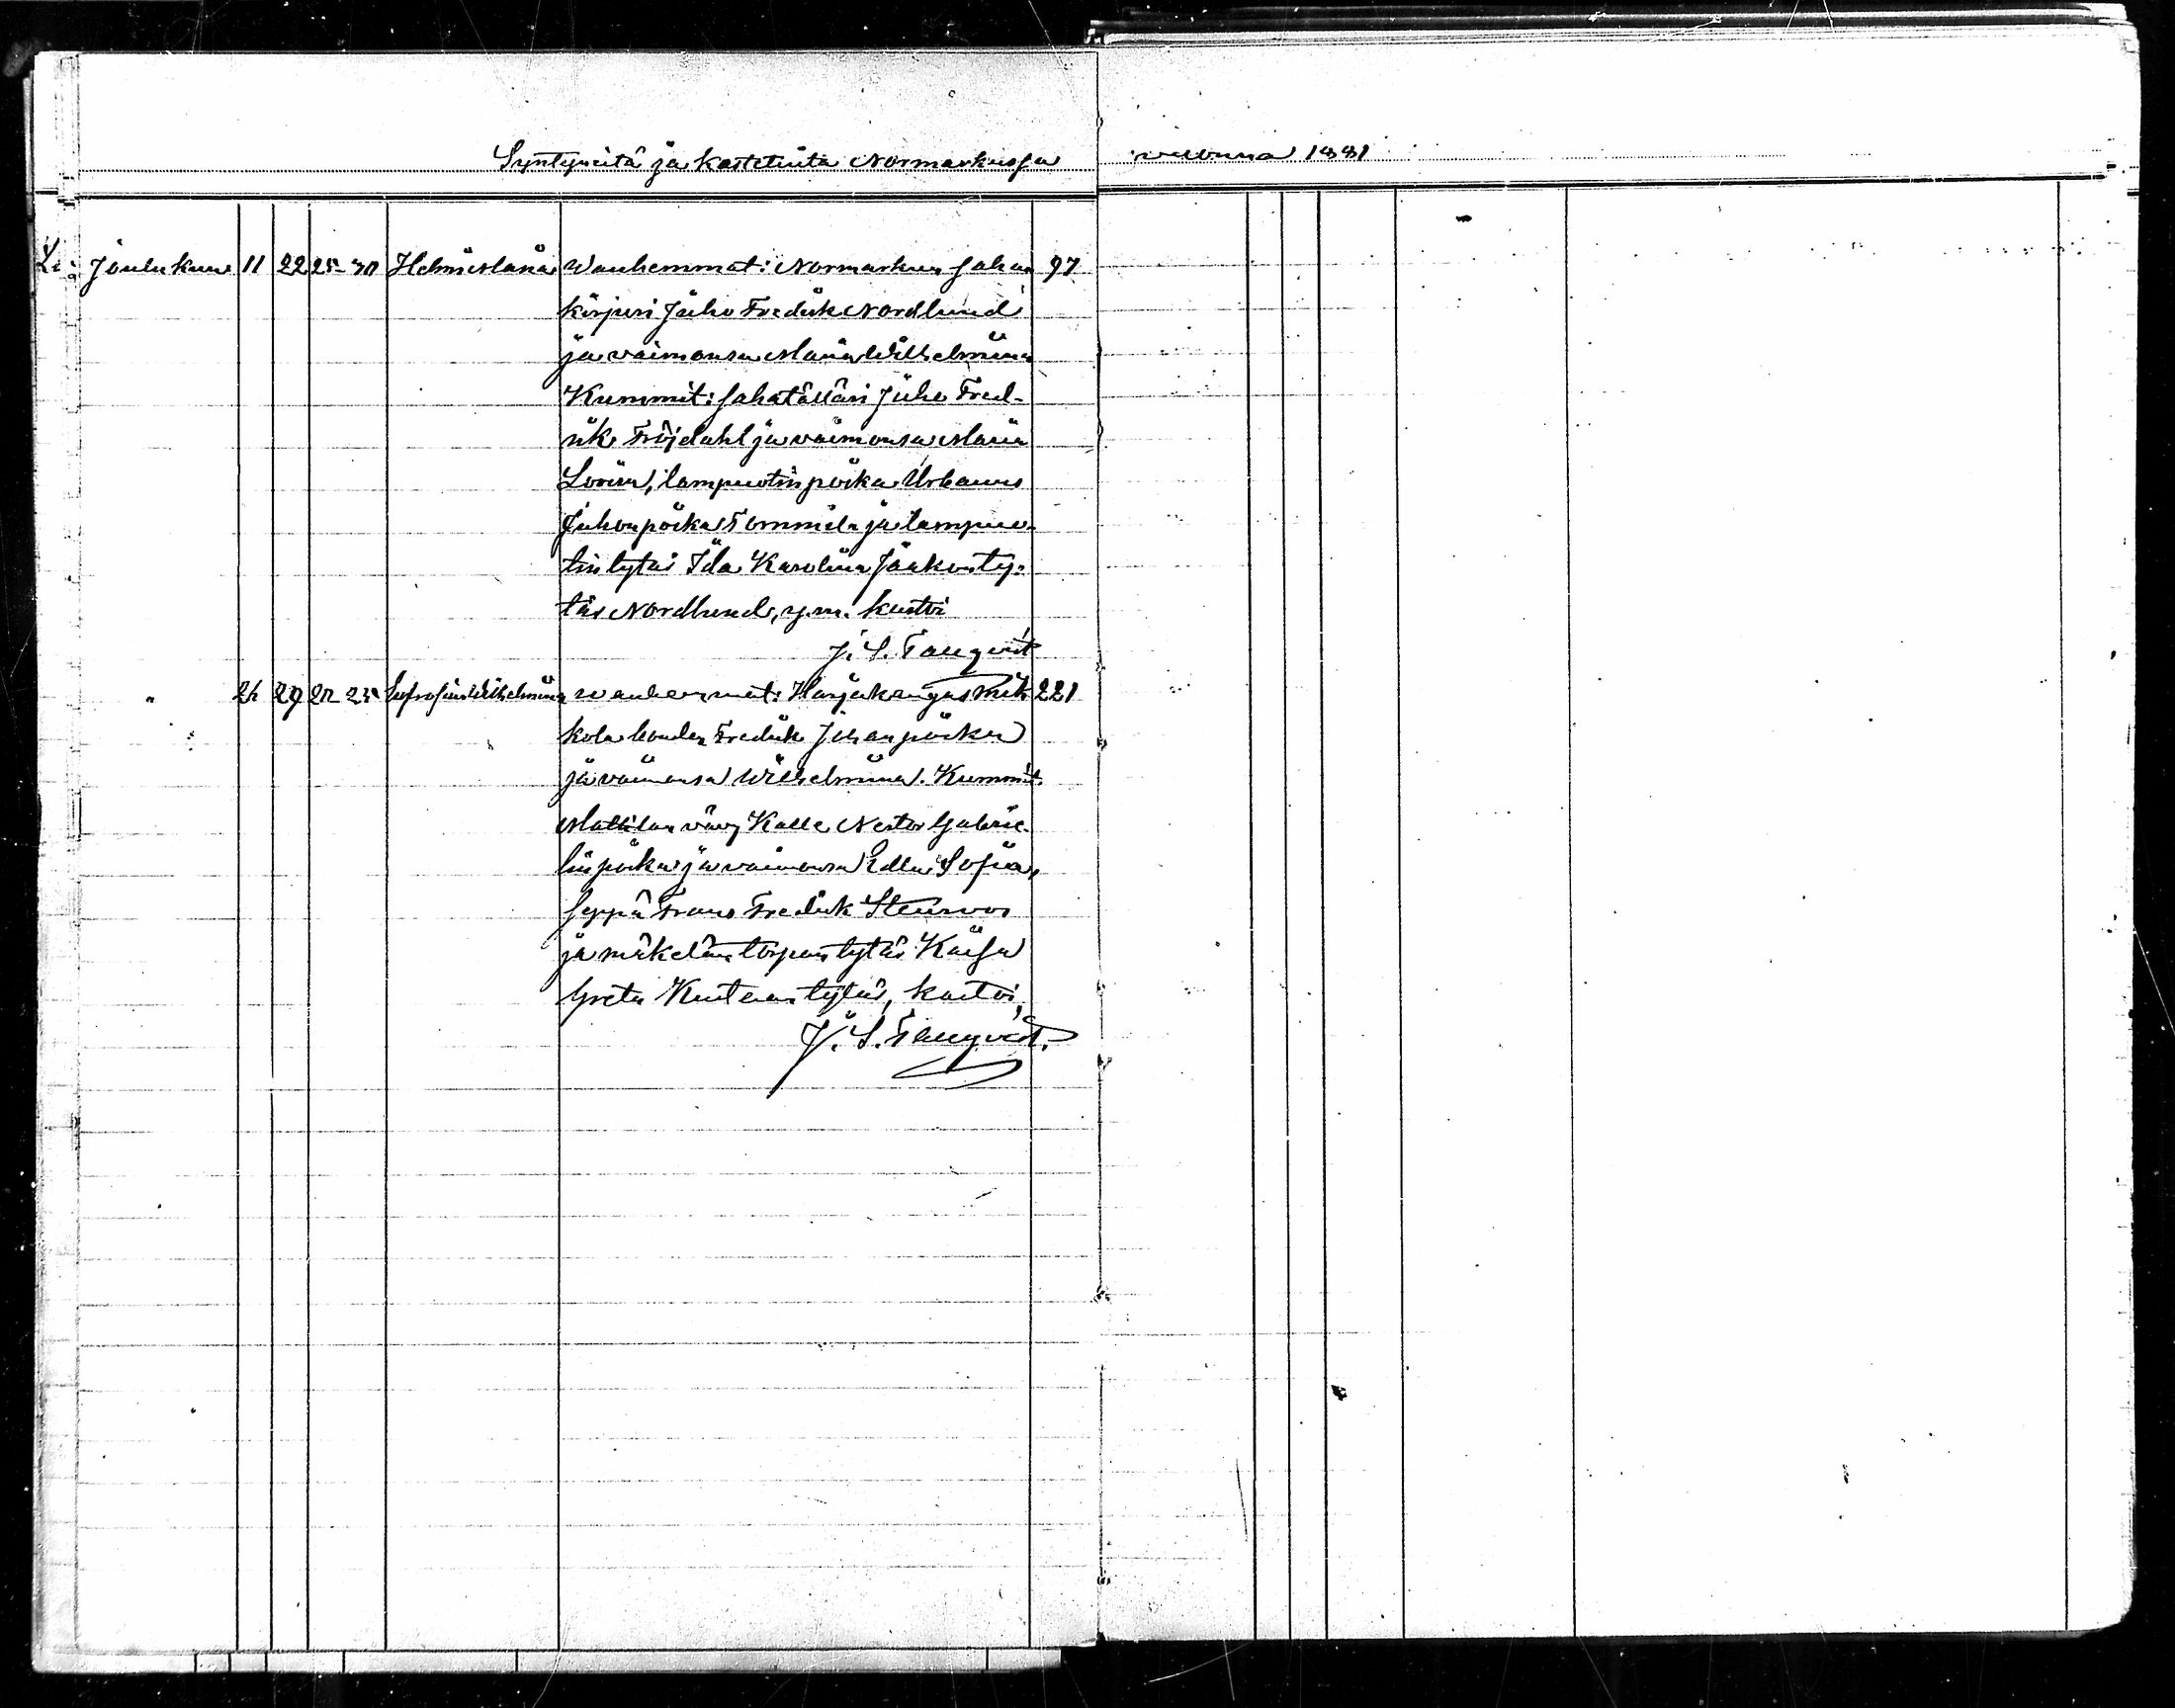 Syntyneitä ja kastetuita Normarkussa vuonna 1881
Joulukuu 11 22 25-30 Helmi Maria Wanhemmat: Normarkun sahan 97
kirjuri Juho Fredrik Nordlund
ja vaimonsa Maria Wilhelmiina
Kummit: sahatälläri Juho Fred-
rik Fröjdahl ja vaimonsa Maria
Lovisa, lampuotin poika Urbanus
Juhonpoika Tommila ja lampuo-
tin tytär Ida Karolina Jaakonty-
tär Nordlund, y.m. kastoi
J. S. Tanqvist
" 26 29 20-25 Eufrosina Wilhelmiina Wanhemmat: Harjakangas Mik 221
kola bonden Fredrik Juhanpoika
ja vaimonsa Wilhelmiina. Kummit:
Mattilan vävy Kalle Nestor Gabrie-
linpoika ja vaimonsa Edla Sofia,
seppä Frans Fredrik Stenroos
ja mäkelän torpan tytär Kaisa
Greta Kustaan tytär, kastoi,
J. S. Tanqvist.